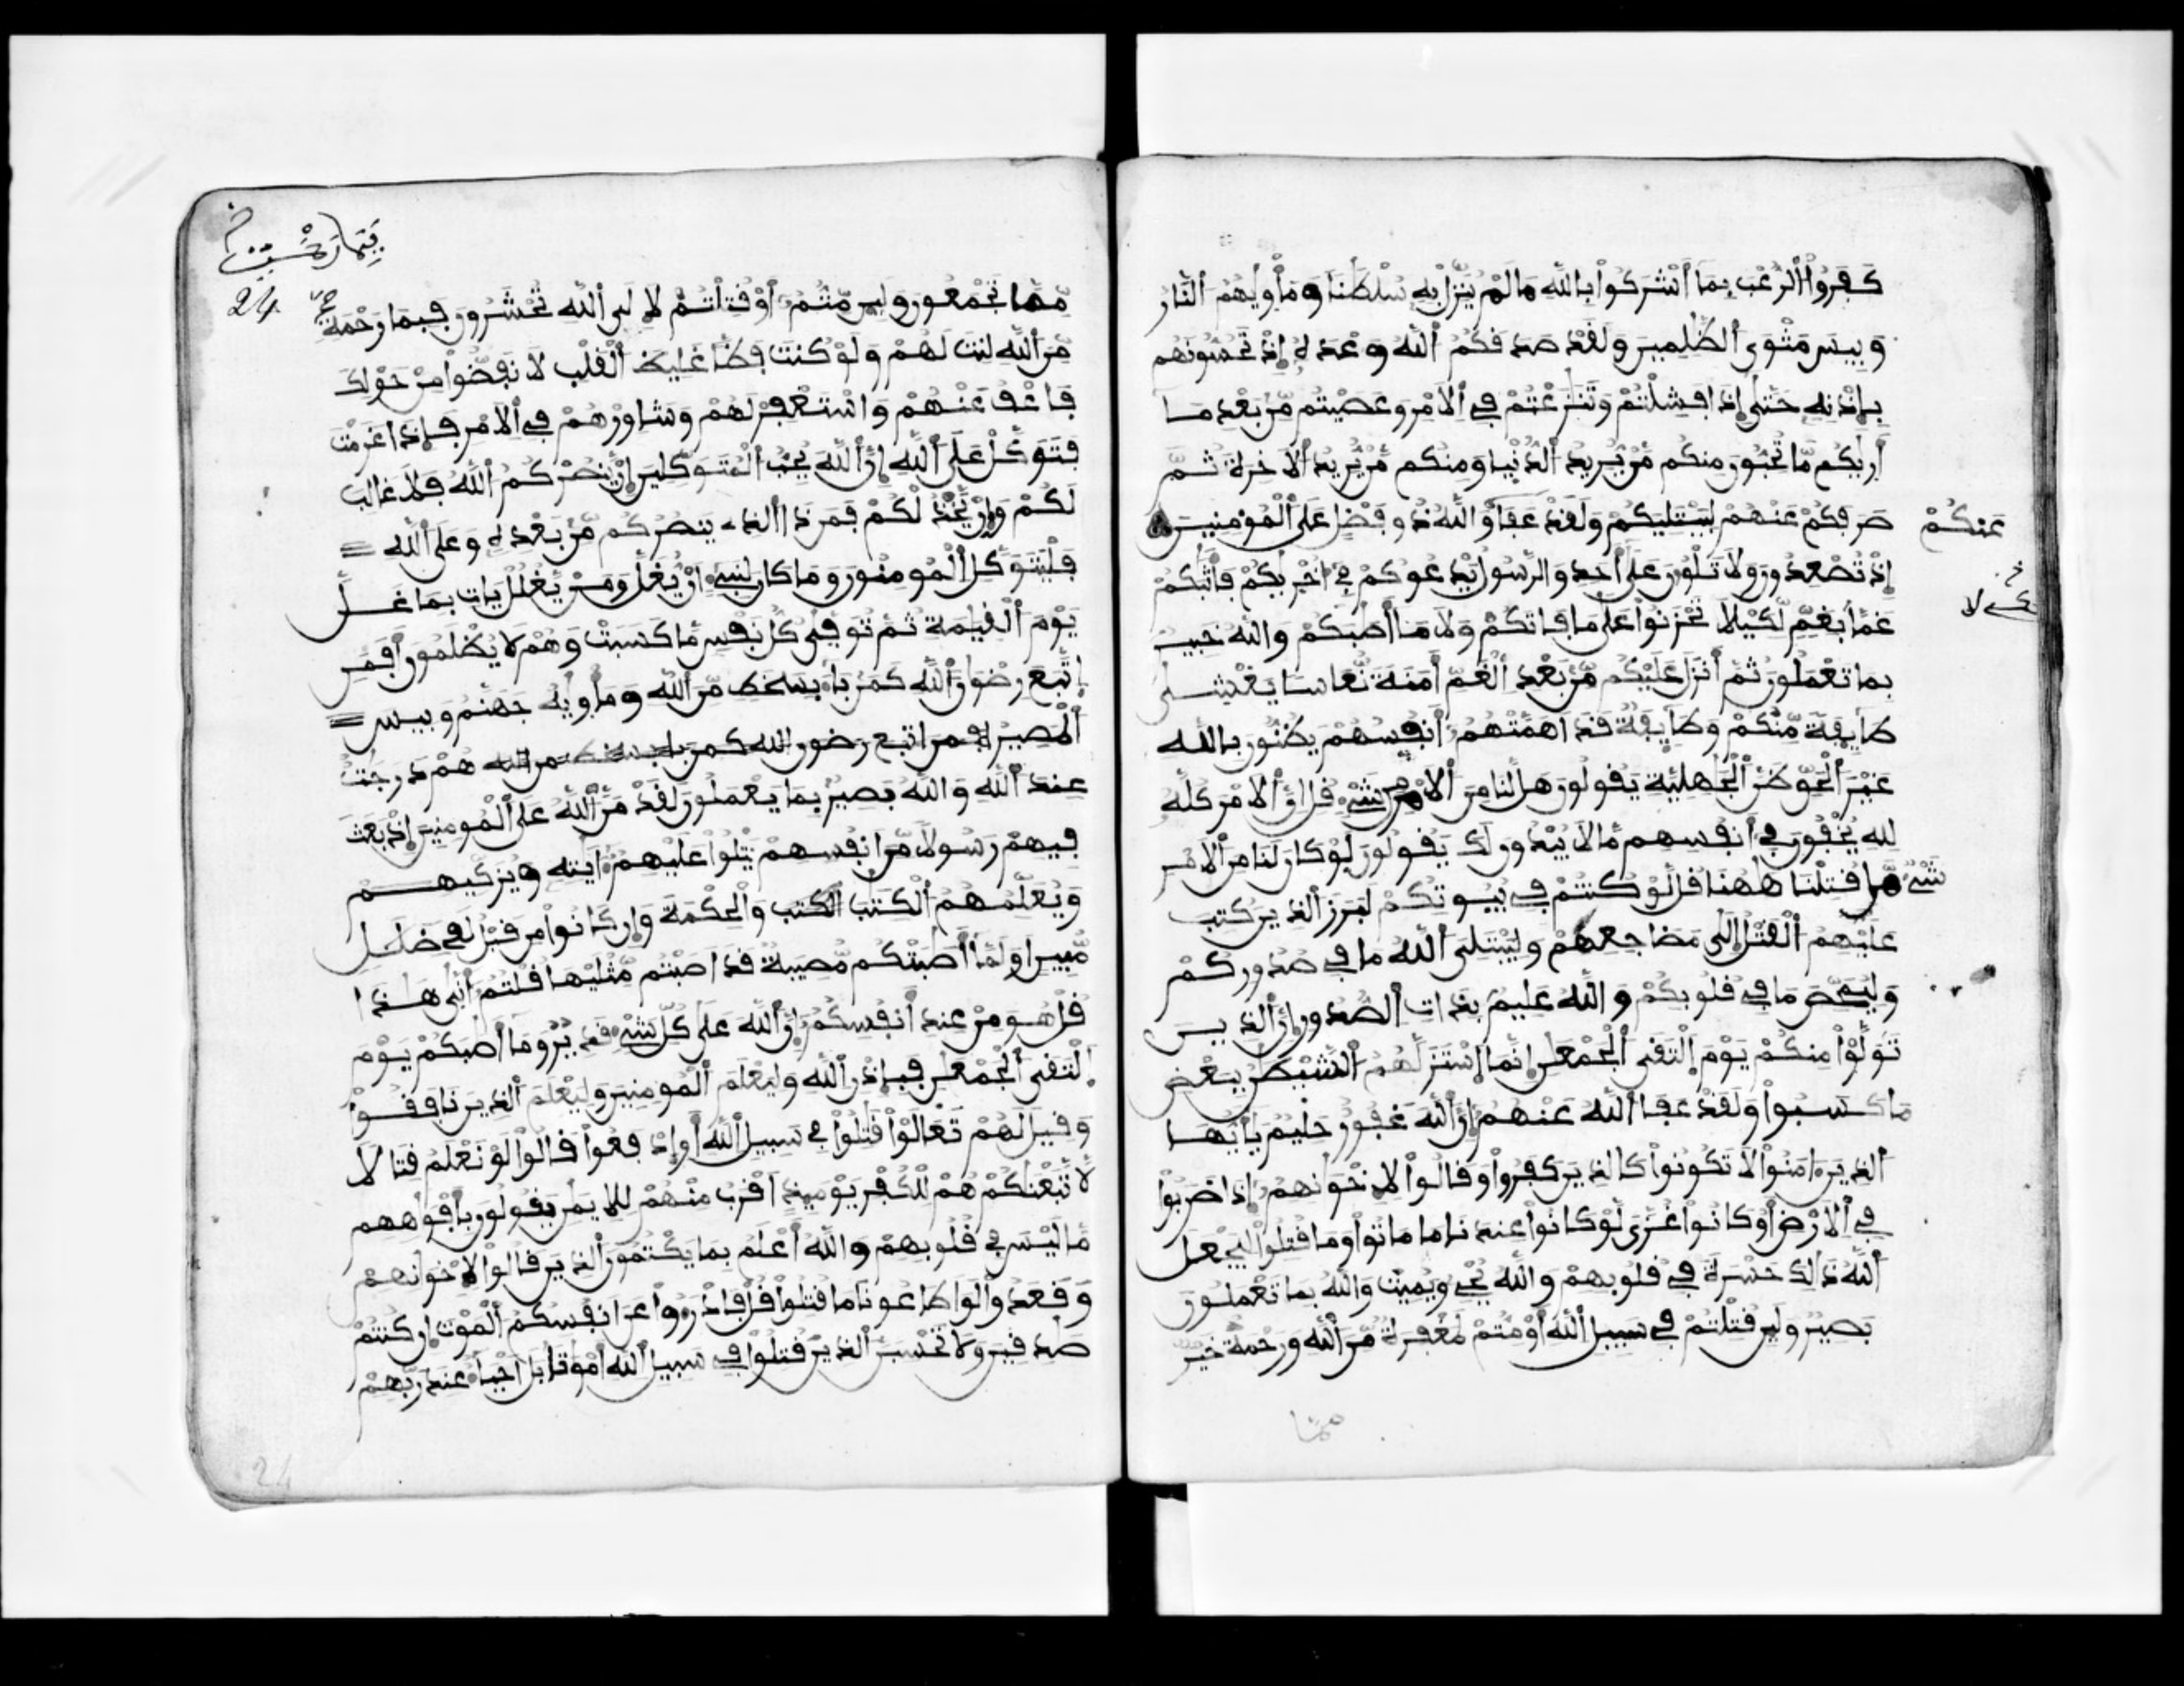 كفروا الرعب بما أشركوا بالله ما لم ينزل به سلطنا ومأويهم النار
وبيس مثوى الظلمين ولقد صدقكم الله وعده إذ تحسونهم
بإذنه حتى إذا فشلتم وتنزعتم في الامر وعصيتم من بعد ما
أريكم ما تحبون منكم من يريد الدنيا ومنكم من يريد الاخرة ثم
صرفكم عنهم ليبتليكم ولقد عفا والله ذو فضل على المومنين
عنكم
إذ تصعدون ولا تلون على أحد والرسول يدعوكم في أخريكم فأثبكم
غما بغم لكيلا تحزنوا على ما فاتكم ولا ما أصبكم والله خبير
بما تعملون ثم أنزل عليكم من بعد الغم أمنة نعاسا يغشى
طايفة منكم وطايفة قد أهمتهم أنفسهم يظنون بالله
غير الحق ظن الجهلية يقولون هل لنا من الامر من شيء قل إن الامر كله
لله يخفون في أنفسهم ما لا يبدون لك يقولون لو كان لنا من الامر
شيء ما قتلنا ههنا قل لو كنتم في بيوتكم لبرز الذين كتب
عليهم القتل إلى مضاجعهم وليبتلي الله ما في صدوركم
وليمحص ما في قلوبكم والله عليم بذات الصدور إن الذين
تولوا منكم يوم التقى الجمعن إنما استزلهم الشيطن ببعض
ما كسبوا ولقد عفا الله عنهم إن الله غفور حليم يأيها
الذين ءامنوا لا تكونوا كالذين كفروا وقالوا لاخونهم إذا ضربوا
في الارض أو كانوا غزى لو كانوا عندنا ما ماتوا وما قتلوا ليجعل
الله ذلك حسرة في قلوبهم والله يحي ويميت والله بما تعملون
بصير ولين قتلتم في سبيل الله أو متم لمغفرة من الله ورحمة خير
مما
24
مما تجمعون ولين متم أو قتلتم لالى الله تحشرون فبما رحمة
من الله لنت لهم ولو كنت فظا غليظ القلب لانفضوا من حولك
فاعف عنهم واستغفر لهم وشاورهم في الامر فإذا عزمت
فتوكل على الله إن الله يحب المتوكلين إن ينصركم الله فلا غالب
لكم وإن يخذلكم فمن ذا الذي ينصركم من بعده وعلى الله
فليتوكل المومنون وما كان لنبيء أن يغل ومن يغلل يات بما غل
يوم القيمة ثم توفى كل نفس ما كسبت وهم لا يظلمون أفمن
اتبع رضون الله كمن باء بسخط من الله ومأويه جهنم وبيس
المصير أفمن اتبع رضون الله كمن باء بسخط من الله هم درجت
عند الله والله بصير بما يعملون لقد من الله على المومنين إذ بعث
فيهم رسولا من أنفسهم يتلوا عليهم ءايته ويزكيهم
ويعلمهم الكتب الكتب والحكمة وإن كانوا من قبل لفي ضلل
مبين أولما أصبتكم مصيبة قد أصبتم مثليها قلتم أنى هذا
قل هو من عند أنفسكم إن الله على كل شيء قدير وما أصبكم يوم
التقى الجمعن فبإذن الله وليعلم المومنين وليعلم الذين نافقوا
وقيل لهم تعالوا قتلوا في سبيل الله أو ادفعوا قالوا لو نعلم قتالا
لاتبعنكم هم للكفر يوميذ أقرب منهم للايمن يقولون بأفوههم
ما ليس في قلوبهم والله أعلم بما يكتمون الذين قالوا لاخونهم
وقعدوا لو اطاعونا ما قتلوا قل فادرءوا عن أنفسكم الموت إن كنتم
صدقين ولا تحسبن الذين قتلوا في سبيل الله أموتا بل أحياء عند ربهم
24